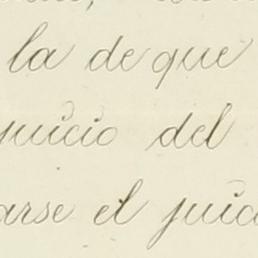 la de que
juicio del
arse el juic